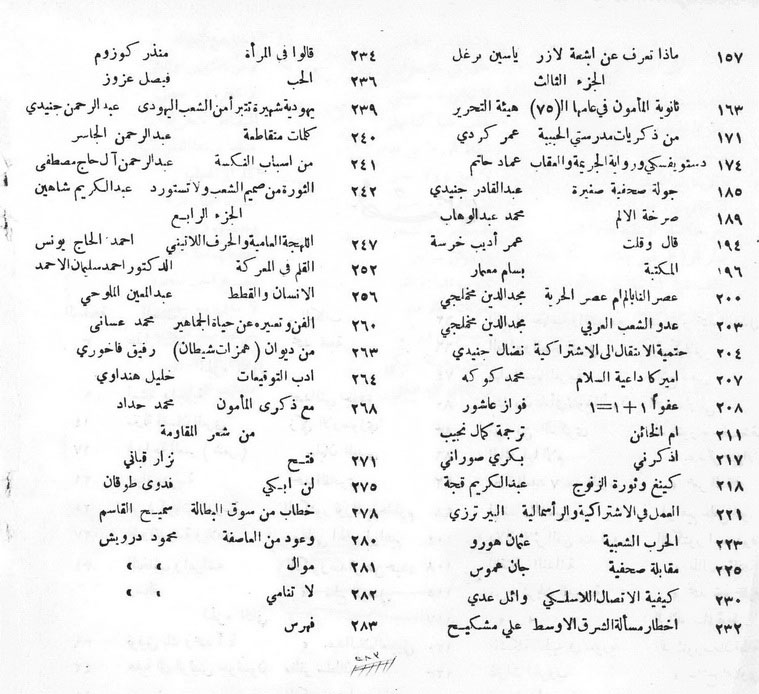 ١٥٧ ماذا نعرف عن اشعة لازر ياسين برغل
الجزء الثالث
١٦٣ ثانوية المأمون في عامها الـ (٧٥) هيئة التحرير
١٧١ من ذكريات مدرستي الحبيبة عمر كردي
١٧٤ دستويفسكي ورواية الجريمة والعقاب عماد حاتم
١٨٥ جولة صحفية صغيرة عبدالقادر جنيدي
١٨٩ صرخة الالم محمد عبدالوهاب
١٩٤ قال وقلت عمر أديب خرسة
١٩٦ المكتبة بسام معمار
٢٠٠ عصر النابالم ام عصر الحرية مجدالدين مخملجي
٢٠٣ عدو الشعب العربي مجدالدين مخملجي
٢٠٤ حتمية الانتقال الى الاشتراكية نضال جنيدي
٢٠٧ اميركا داعية السلام محمد كوكه
٢٠٨ عفواً ١+١=١ فواز عاشور
٢١١ ام الخائن ترجمة كمال نجيب
٢١٧ اذكرني بكري صوراني
٢١٨ كينغ وثورة الزنوج عبدالكريم قبجة
٢٢١ العمل في الاشتراكية والرأسمالية البير ترزي
٢٢٣ الحرب الشعبية عثمان هورو
٢٢٥ مقابلة صحفية جان هموس
٢٣٠ كيفية الاتصال اللاسلكي وائل عدي
٢٣٢ اخطار مسألة الشرق الاوسط علي مشكيح
٢٣٤ قالوا في المرأة منذر كوزوم
٢٣٦ الحب فيصل عزوز
٢٣٩ يهودية شهيرة تتبرأ من الشعب اليهودي عبدالرحمن جنيدي
٢٤٠ كلمات متقاطعة عبدالرحمن الجاسر
٢٤١ من اسباب النكسة عبدالرحمن آل حاج مصطفى
٢٤٢ الثورة من صميم الشعب ولا تستورد عبدالكريم شاهين
الجزء الرابع
٢٤٧ اللهجة العامية والحرف اللاتيني احمد الحاج يونس
٢٥٢ القلم في المعركة الدكتور احمد سليمان الاحمد
٢٥٦ الانسان والقطط عبدالمعين الملوحي
٢٦٠ الفن وتعبيره عن حياة الجماهير محمد عساني
٢٦٣ من ديوان ( همزات شيطان ) رفيق فاخوري
٢٦٤ ادب التوقيعات خليل هنداوي
٢٦٨ مع ذكرى المأمون محمد حداد
من شعر المقاومة
٢٧١ فتح نزار قباني
٢٧٥ لن ابكي فدوى طوقان
٢٧٨ خطاب من سوق البطالة سميح القاسم
٢٨٠ وعود من العاصفة محمود درويش
٢٨١ موال » »
٢٨٢ لا تنامي » »
٢٨٣ فهرس